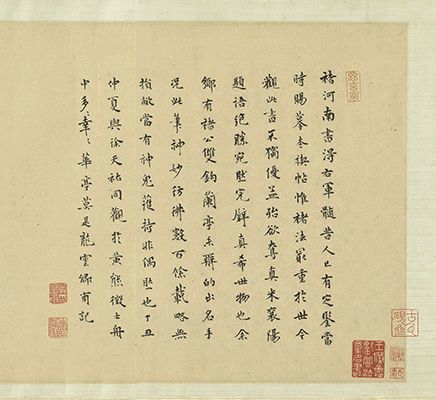 褚河南書得右軍髓昔人已有定鑒當
時賜摹本禊帖惟褚法最重於世今
觀此書不獨優孟殆欲奪真米襄陽
題語絕勝宛然完璧真希世物也余
鄉有諸公雙鉤蘭亭的出名手
況此筆神妙彷彿數百餘載略無
損敝當有神鬼護持非偶然也丁丑
仲夏與徐天祐同觀於黃熊徵士舟
中多〻幸〻華亭莫是龍雲卿甫記